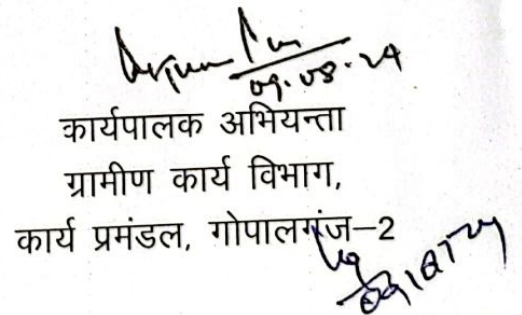 09.08.24
कार्यपालक अभियन्ता
ग्रामीण कार्य विभाग,
कार्य प्रमंडल, गोपालगंज-2